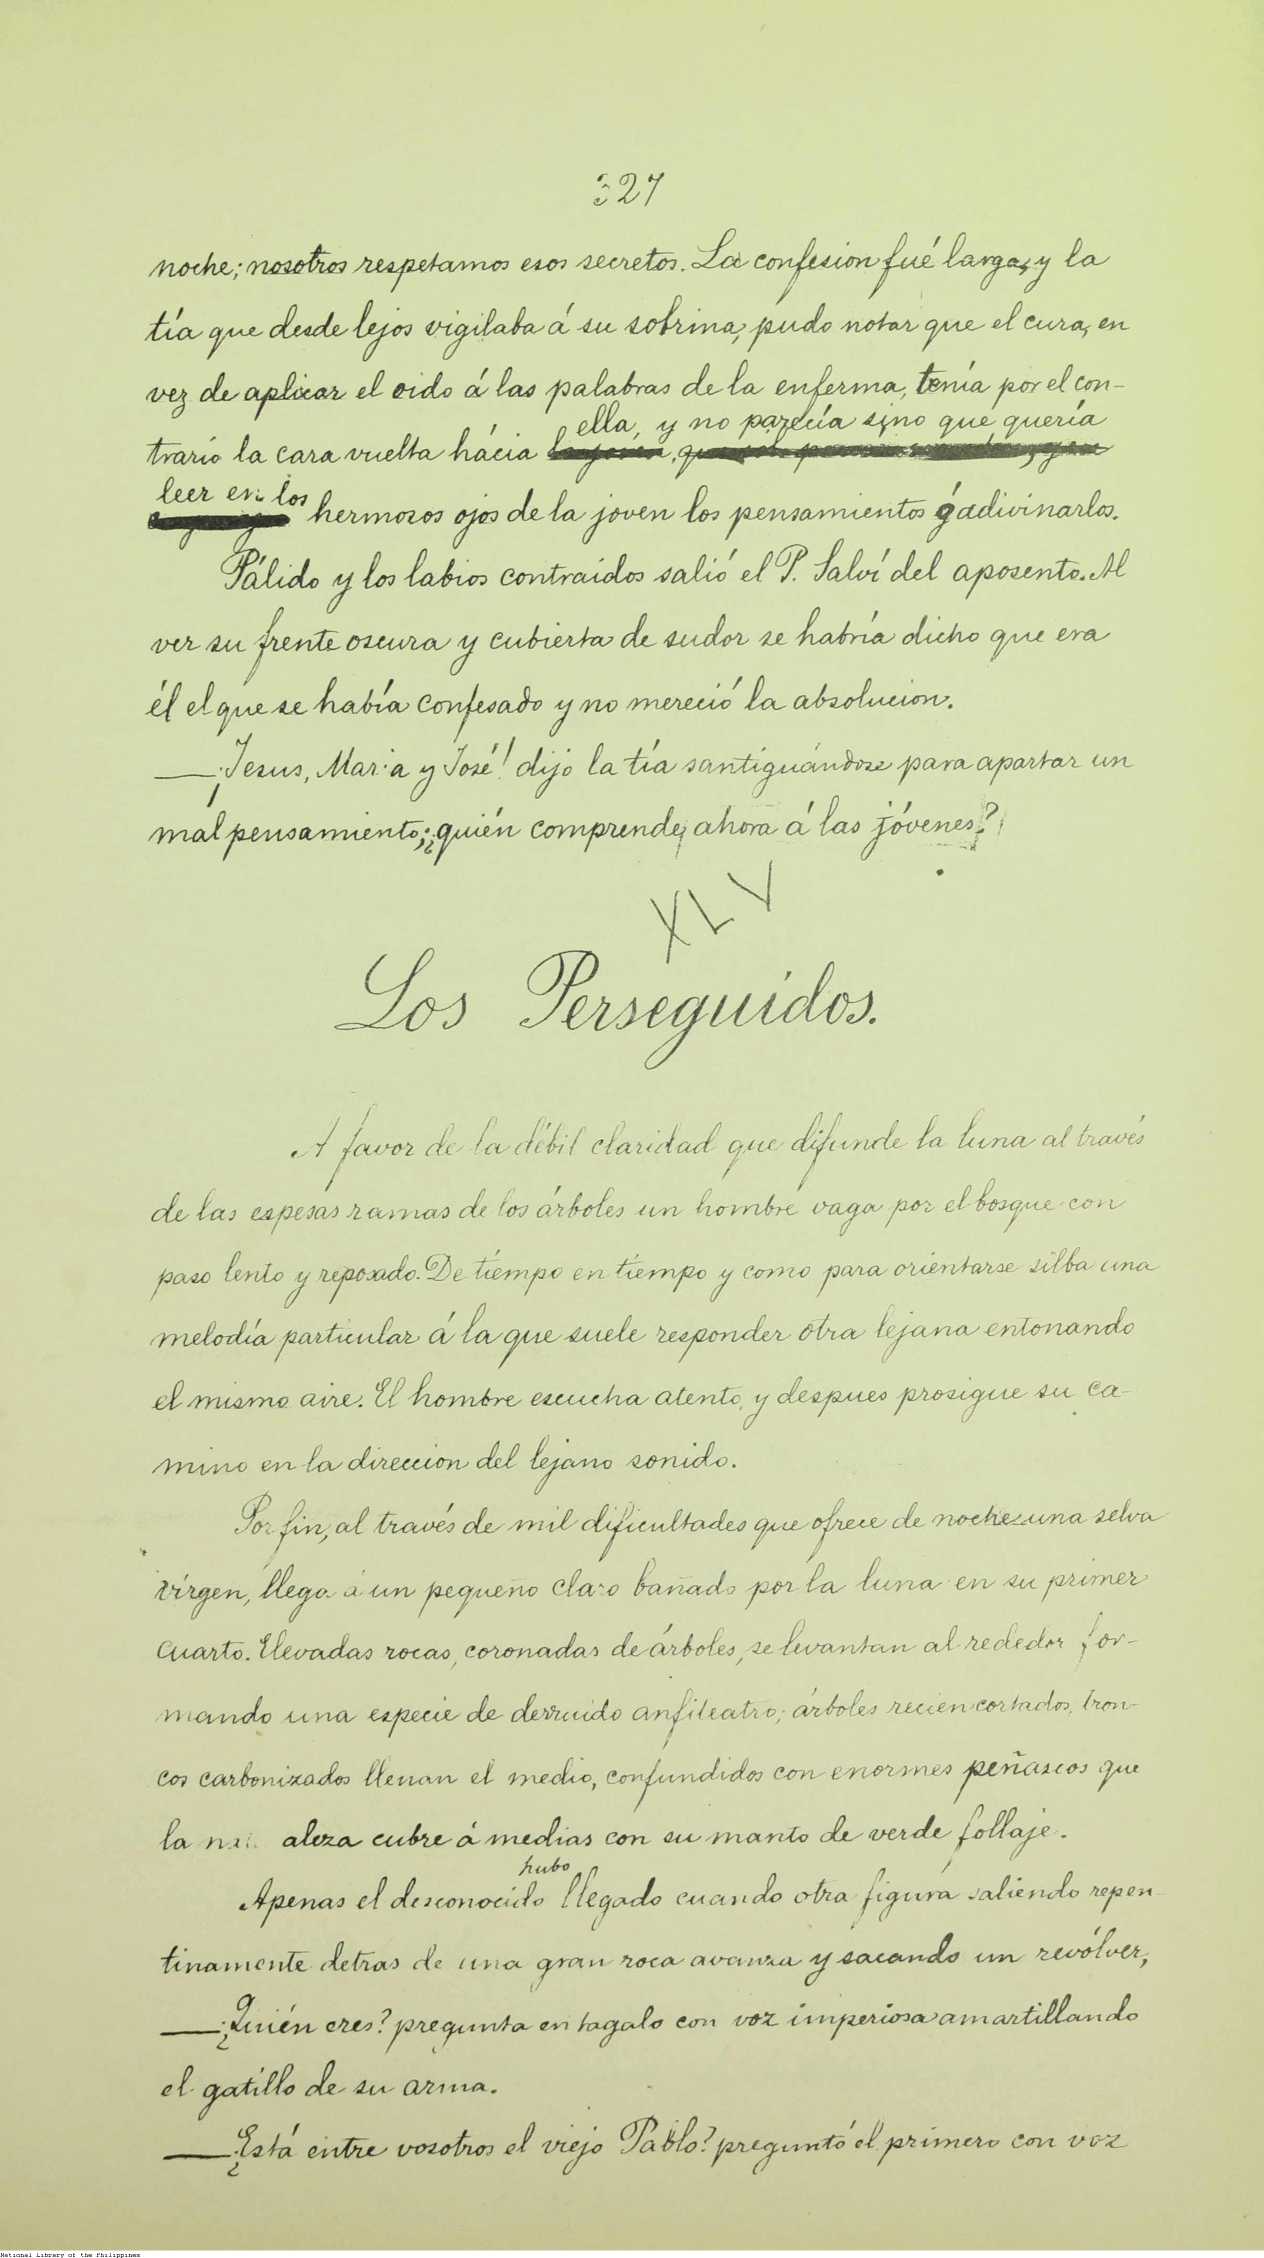 327
noche; nosotros respetamos esos secretos. La confesion fué larga, y la
tía que desde lejos vigilaba á su sobrina, pudo notar que el cura, en
vez de aplicar el oido á las palabras de la enferma, tenía por el con-
ella, y no parecía sino que quería
trario la cara vuelta hácia
leer en los
hermosos ojos de la joven los pensamientos ó adivinarlos.
Pálido y los labios contraidos salió el P. Salví del aposento. Al
ver su frente oscura y cubierta de sudor se habría dicho que era
él el que se había confesado y no mereció la absolucion.
—¡Jesus, Maria y José! dijo la tía santiguándose para apartar un
mal pensamiento; ¿quién comprende ahora á las jóvenes?
XLV
Los Perseguidos.
A favor de la débil claridad que difunde la luna al través
de las espesas ramas de los árboles un hombre vaga por el bosque con
paso lento y reposado. De tiempo en tiempo y como para orientarse silba una
melodía particular á la que suele responder otra lejana entonando
el mismo aire. El hombre escucha atento, y despues prosigue su ca-
mino en la direccion del lejano sonido.
Por fin, al través de mil dificultades que ofrece de noche una selva
vírgen, llega á un pequeño claro bañado por la luna en su primer
cuarto. Elevadas rocas, coronadas de árboles, se levantan al rededor for-
mando una especie de derruido anfiteatro; árboles recien cortados, tron-
cos carbonizados llenan el medio, confundidos con enormes peñascos que
la na aleza cubre á medias con su manto de verde follaje.
hubo
Apenas el desconocido llegado cuando otra figura saliendo repen-
tinamente detras de una gran roca avanza y sacando un revólver,
—¿Quién eres? pregunta en tagalo con voz imperiosa amartillando
el gatillo de su arma.
—¿Está entre vosotros el viejo Pablo? preguntó el primero con voz
National Library of the Philippines